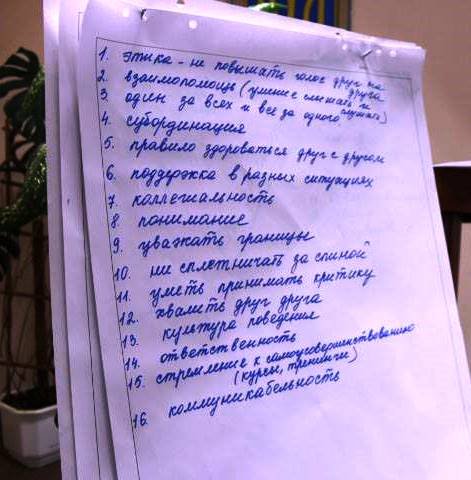 1. этика - не повышать голос друг на
друга
2. взаимопомощь (умение слышать и
слушать)
3. один за всех и все за одного
4. субординация
5. правило здороваться друг с другом
6. поддержка в разных ситуациях
7. коллегиальность
8. понимание
9. уважать границы
10. ни сплетничать за спиной
11. уметь принимать критику
12. хвалить друг друга
13. культура поведения
14. ответственность
15. стремление к самоусовершенствованию
(курсы, тренинги)
16. коммуникабельность